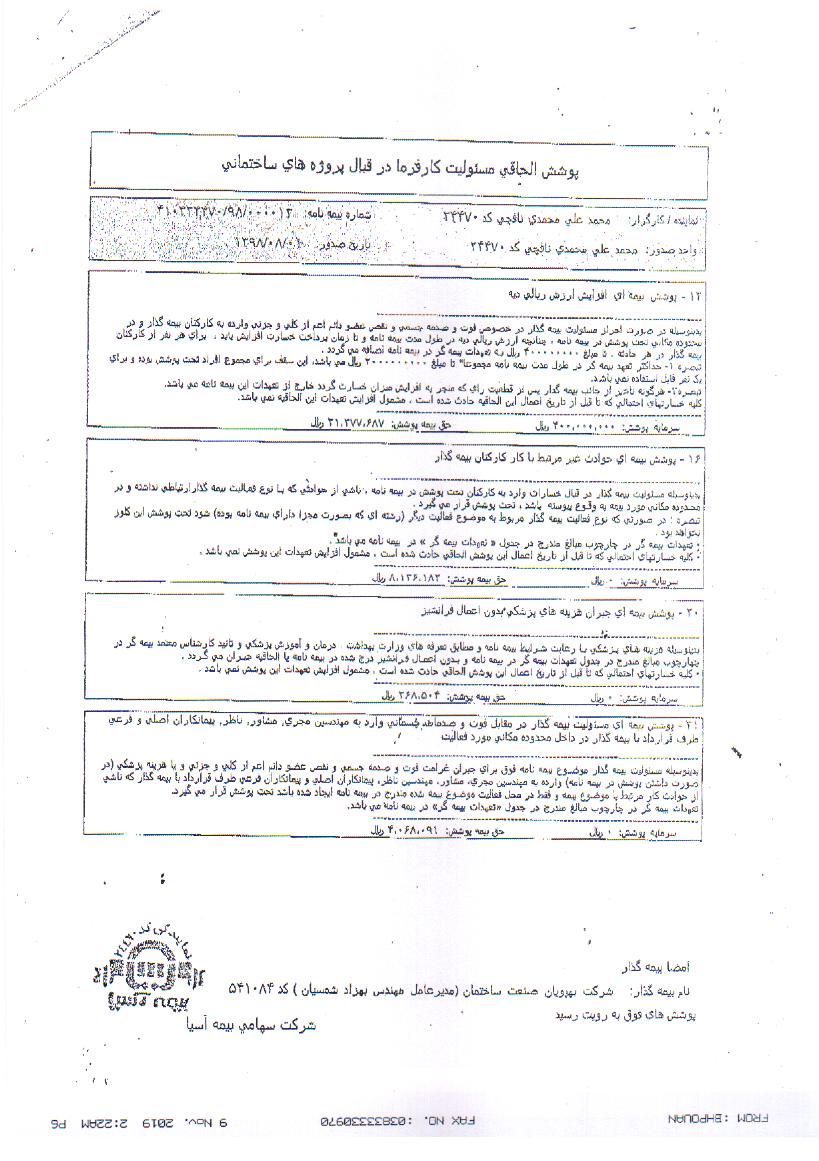 پوشش الحاقي مسئوليت كارفرما در قبال پروژه هاي ساختماني
نماينده / كارگزار: محمد علي محمدي نافچي كد ۲۴۴۷۰ شماره بيمه نامه:
واحد صدور: محمد علي محمدي نافچي كد ۲۴۴۷۰ تاريخ صدور: ۱۳۹۸/۰۸/۰۱
۱۲ - پوشش بيمه اي افزايش ارزش ريالي ديه
بدينوسيله در صورت احراز مسئوليت بيمه گذار در خصوص فوت و صدمه جسمي و نقص عضو دائم اعم از كلي و جزئي وارده به كاركنان بيمه گذار و در
محدوده مكاني تحت پوشش در بيمه نامه ، چنانچه ارزش ريالي ديه در طول مدت بيمه نامه و تا زمان پرداخت خسارت افزايش يابد ، براي هر نفر از كاركنان
بيمه گذار در هر حادثه ، مبلغ ۴۰۰۰۰۰۰۰۰ ريال به تعهدات بيمه گر در بيمه نامه اضافه مي گردد .
تبصره ۱- حداكثر تعهد بيمه گر در طول مدت بيمه نامه مجموعا" تا مبلغ ريال مي باشد، اين سقف براي مجموع افراد تحت پوشش بوده و براي
يك نفر قابل استفاده نمي باشد.
تبصره۲- هرگونه تاخير از جانب بيمه گذار پس از قطعيت راي كه منجر به افزايش ميزان خسارت گردد خارج از تعهدات اين بيمه نامه مي باشد.
كليه خسارتهاي احتمالي كه تا قبل از تاريخ اعمال اين الحاقيه حادث شده است ، مشمول افزايش تعهدات اين الحاقيه نمي باشد.
سرمايه پوشش: ۴۰۰,۰۰۰,۰۰۰ ريال حق بيمه پوشش: ۲۱,۳۷۷,۶۸۷ ريال
۱۶ - پوشش بيمه اي حوادث غير مرتبط با كار كاركنان بيمه گذار
بدينوسيله مسئوليت بيمه گذار در قبال خسارات وارد به كاركنان تحت پوشش در بيمه نامه ، ناشي از حوادثي كه با نوع فعاليت بيمه گذار ارتباطي نداشته و در
محدوده مكاني مورد بيمه به وقوع پيوسته باشد ، تحت پوشش قرار مي گيرد .
تبصره : در صورتي كه نوع فعاليت بيمه گذار مربوط به موضوع فعاليت ديگر (رشته اي كه بصورت مجزا داراي بيمه نامه بوده) شود تحت پوشش اين كلوز
نخواهد بود .
* تعهدات بيمه گر در چارچوب مبالغ مندرج در جدول « تعهدات بيمه گر » در بيمه نامه مي باشد.
* كليه خسارتهاي احتمالي كه تا قبل از تاريخ اعمال اين پوشش الحاقي حادث شده است ، مشمول افزايش تعهدات اين پوشش نمي باشد .
سرمايه پوشش: ۰ ريال حق بيمه پوشش: ۸,۱۳۶,۱۸۲ ريال
۲۰ - پوشش بيمه اي جبران هزينه هاي پزشكي بدون اعمال فرانشيز
بدينوسيله هزينه هاي پزشكي با رعايت شرايط بيمه نامه و مطابق تعرفه هاي وزارت بهداشت ، درمان و آموزش پزشكي و تائيد كارشناس معتمد بيمه گر در
چهارچوب مبالغ مندرج در جدول تعهدات بيمه گر در بيمه نامه و بدون اعمال فرانشيز درج شده در بيمه نامه يا الحاقيه جبران مي گردد .
* كليه خسارتهاي احتمالي كه تا قبل از تاريخ اعمال اين پوشش الحاقي حادث شده است ، مشمول افزايش تعهدات اين پوشش نمي باشد .
سرمايه پوشش: ۰ ريال حق بيمه پوشش: ۲۶۸,۵۰۴ ريال
۲۱ - پوشش بيمه اي مسئوليت بيمه گذار در مقابل فوت و صدمات جسماني وارد به مهندسين مجري، مشاور، ناظر، پيمانكاران اصلي و فرعي
طرف قرارداد با بيمه گذار در داخل محدوده مكاني مورد فعاليت
بدينوسيله مسئوليت بيمه گذار موضوع بيمه نامه فوق براي جبران غرامت فوت و صدمه جسمي و نقص عضو دائم اعم از كلي و جزئي و يا هزينه پزشكي (در
صورت داشتن پوشش در بيمه نامه) وارده به مهندسين مجري، مشاور، مهندسين ناظر، پيمانكاران اصلي و پيمانكاران فرعي طرف قرارداد با بيمه گذار كه ناشي
از حوادث كار مرتبط با موضوع بيمه و فقط در محل فعاليت موضوع بيمه شده مندرج در بيمه نامه ايجاد شده باشد تحت پوشش قرار مي گيرد.
تعهدات بيمه گر در چارچوب مبالغ مندرج در جدول «تعهدات بيمه گر» در بيمه نامه مي باشد.
سرمايه پوشش: ۰ ريال حق بيمه پوشش: ۴,۰۶۸,۰۹۱ ريال
امضا بيمه گذار
نام بيمه گذار: شركت بهپويان صنعت ساختمان (مديرعامل مهندس بهزاد شمسيان ) كد ۵۴۱۰۸۴
پوشش هاي فوق به رويت رسيد
نمايندگي كد ۲۴۴۷۰
شركت سهامي بيمه آسيا
FROM :BHPOUAN FAX NO. :03833330970 9 Nov. 2019 2:22AM P6